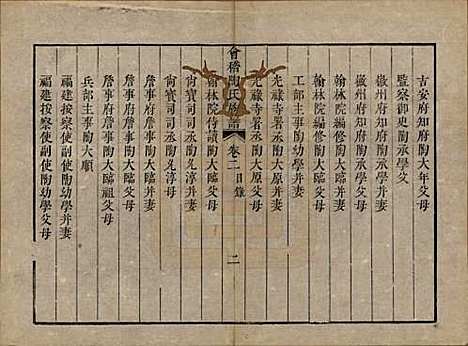 吉安府知府陶大年父母
監察御史陶承學父
徽州府知府陶承學父母
徽州府知府陶承學并妻
翰林院編修陶大臨父母
翰林院編修陶大臨并妻
工部主事陶幼學父母
光祿寺署丞陶大原父母
光祿寺署丞陶大原并妻
會稽陶氏族譜 卷二 目錄 二
翰林院侍讀陶大臨并妻
尚寶司司丞陶允淳父母
尚寶司司丞陶允淳并妻
詹事府詹事陶大臨父母
詹事府詹事陶大臨祖父母
詹事府詹事陶大臨并妻
兵部主事陶大順
福建按察使副使陶幼學父母
福建按察使副使陶幼學并妻